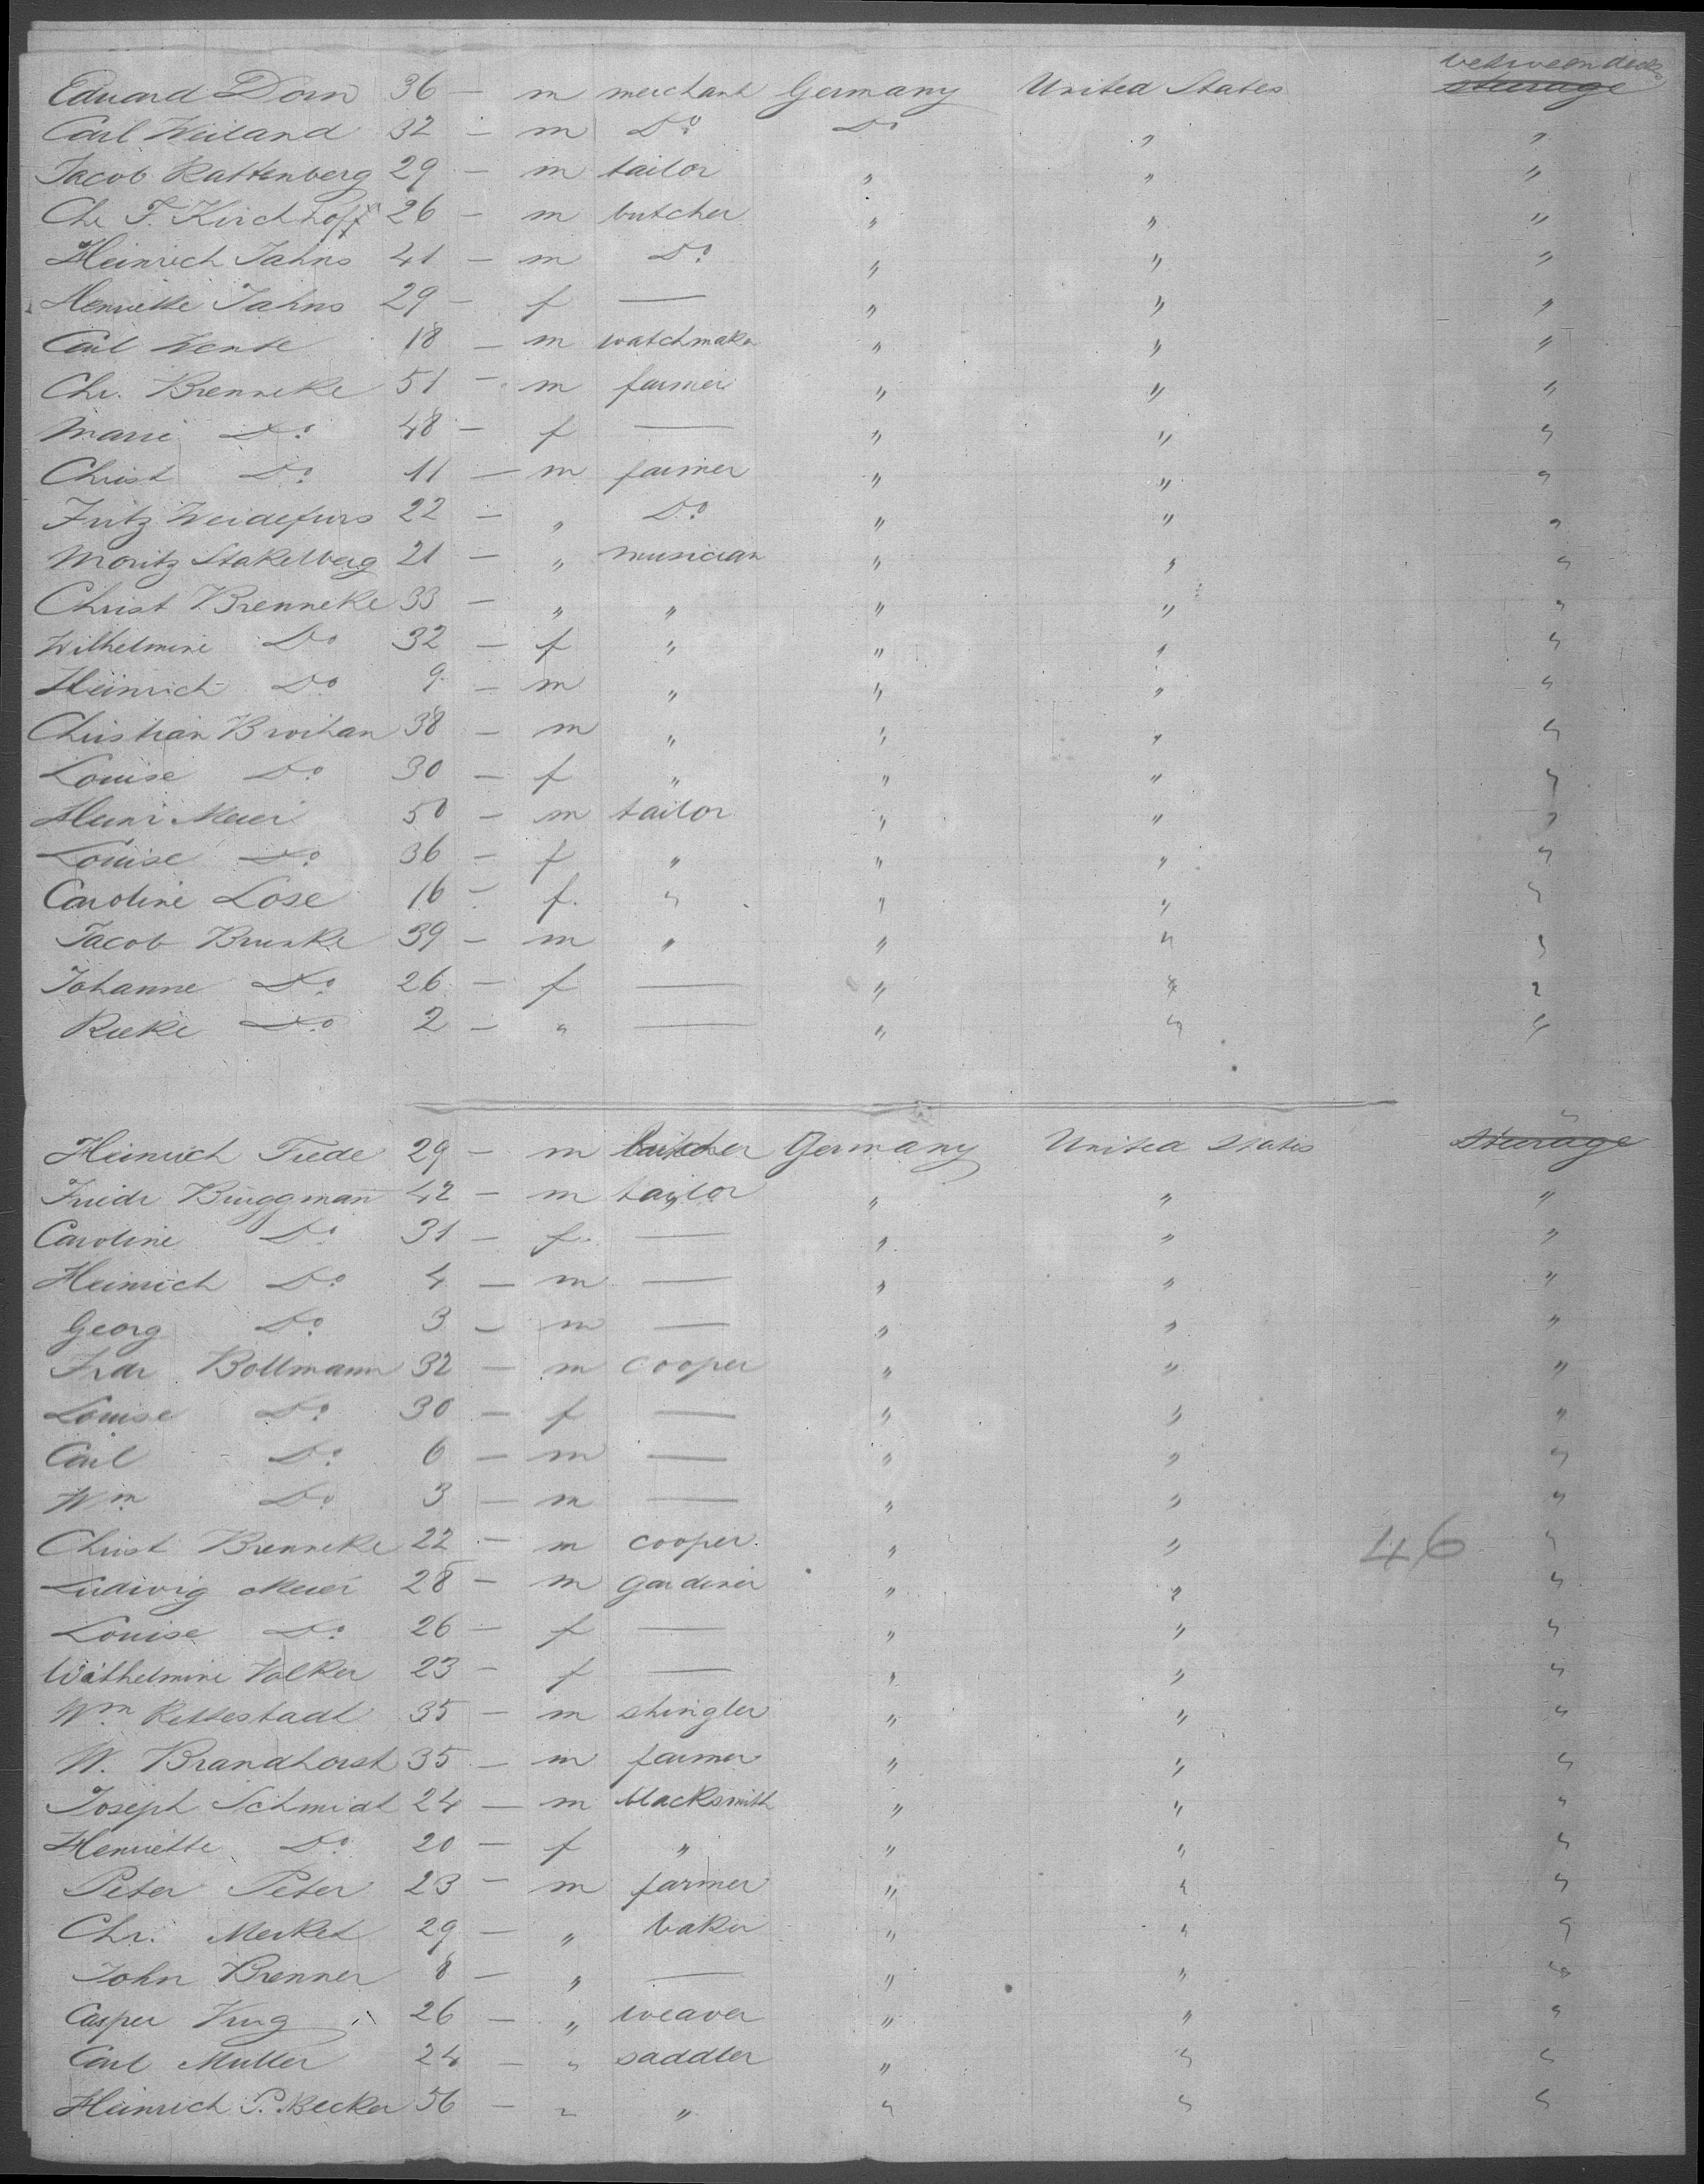 between decks
Eduard Dorn 36 — m merchant Germany United States steerage
Carl Weiland 32 — m Do Do " "
Jacob Rattenberg 29 — m tailor " " "
Chr F. Kirchhoff 26 — m butcher " " "
Heinrich Jahns 41 — m Do " " "
Henriette Jahns 29 — f — " " "
Carl Wente 18 — m watchmaker " " "
Chr. Brenneke 51 — m farmer " " "
Marie Do 48 — f — " " "
Christ Do 11 — m farmer " " "
Fritz Weidefurs 22 — " Do " " "
Moritz Stakelberg 21 — " musician " " "
Christ Brenneke 33 — " " " " "
Wilhelmine Do 32 — f " " " "
Heinrich Do 9 — m " " " "
Christian Broihan 38 — m " " " "
Louise Do 30 — f " " " "
Heinr Meier 50 — m tailor " " "
Louise Do 36 — f " " " "
Caroline Lose 16 — f. " " " "
Jacob Brunke 39 — m " " " "
Johanne Do 26 — f — " " "
Rieke Do 2 — " — " " "
Heinrich Tiede 29 — m butcher Germany United States Steerage
Friedr Bruggman 42 — m taylor " " "
Caroline Do 31 — f. — " " "
Heinrich Do 4 — m — " " "
Georg Do 3 — m — " " "
Frdr Bollmann 32 — m cooper " " "
Louise Do 30 — f — " " "
Carl Do 6 — m — " " "
Wm Do 3 — m — " " "
Christ Brenneke 22 — m cooper. " " 46 "
Ludwig Meier 28 — m gardiner " " "
Louise Do 26 — f — " " "
Wilhelmine Volker 23 — f — " " "
Wm Rettestadt 35 — m shingler " " "
W. Brandhorst 35 — m farmer " " "
Joseph Schmidt 24 — m blacksmith " " "
Henriette Do 20 — f " " " "
Peter Peter 23 — m farmer " " "
Chr. Merket 29 — " baker " " "
John Brenner 8 — " — " " "
Casper Krug 26 — " weaver " " "
Carl Muller 24 — " saddler " " "
Heinrich P. Becker 56 — " " " " "